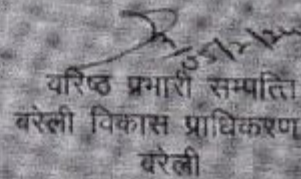 05/2/24
वरिष्ठ प्रभारी सम्पत्ति
बरेली विकास प्राधिकरण
बरेली